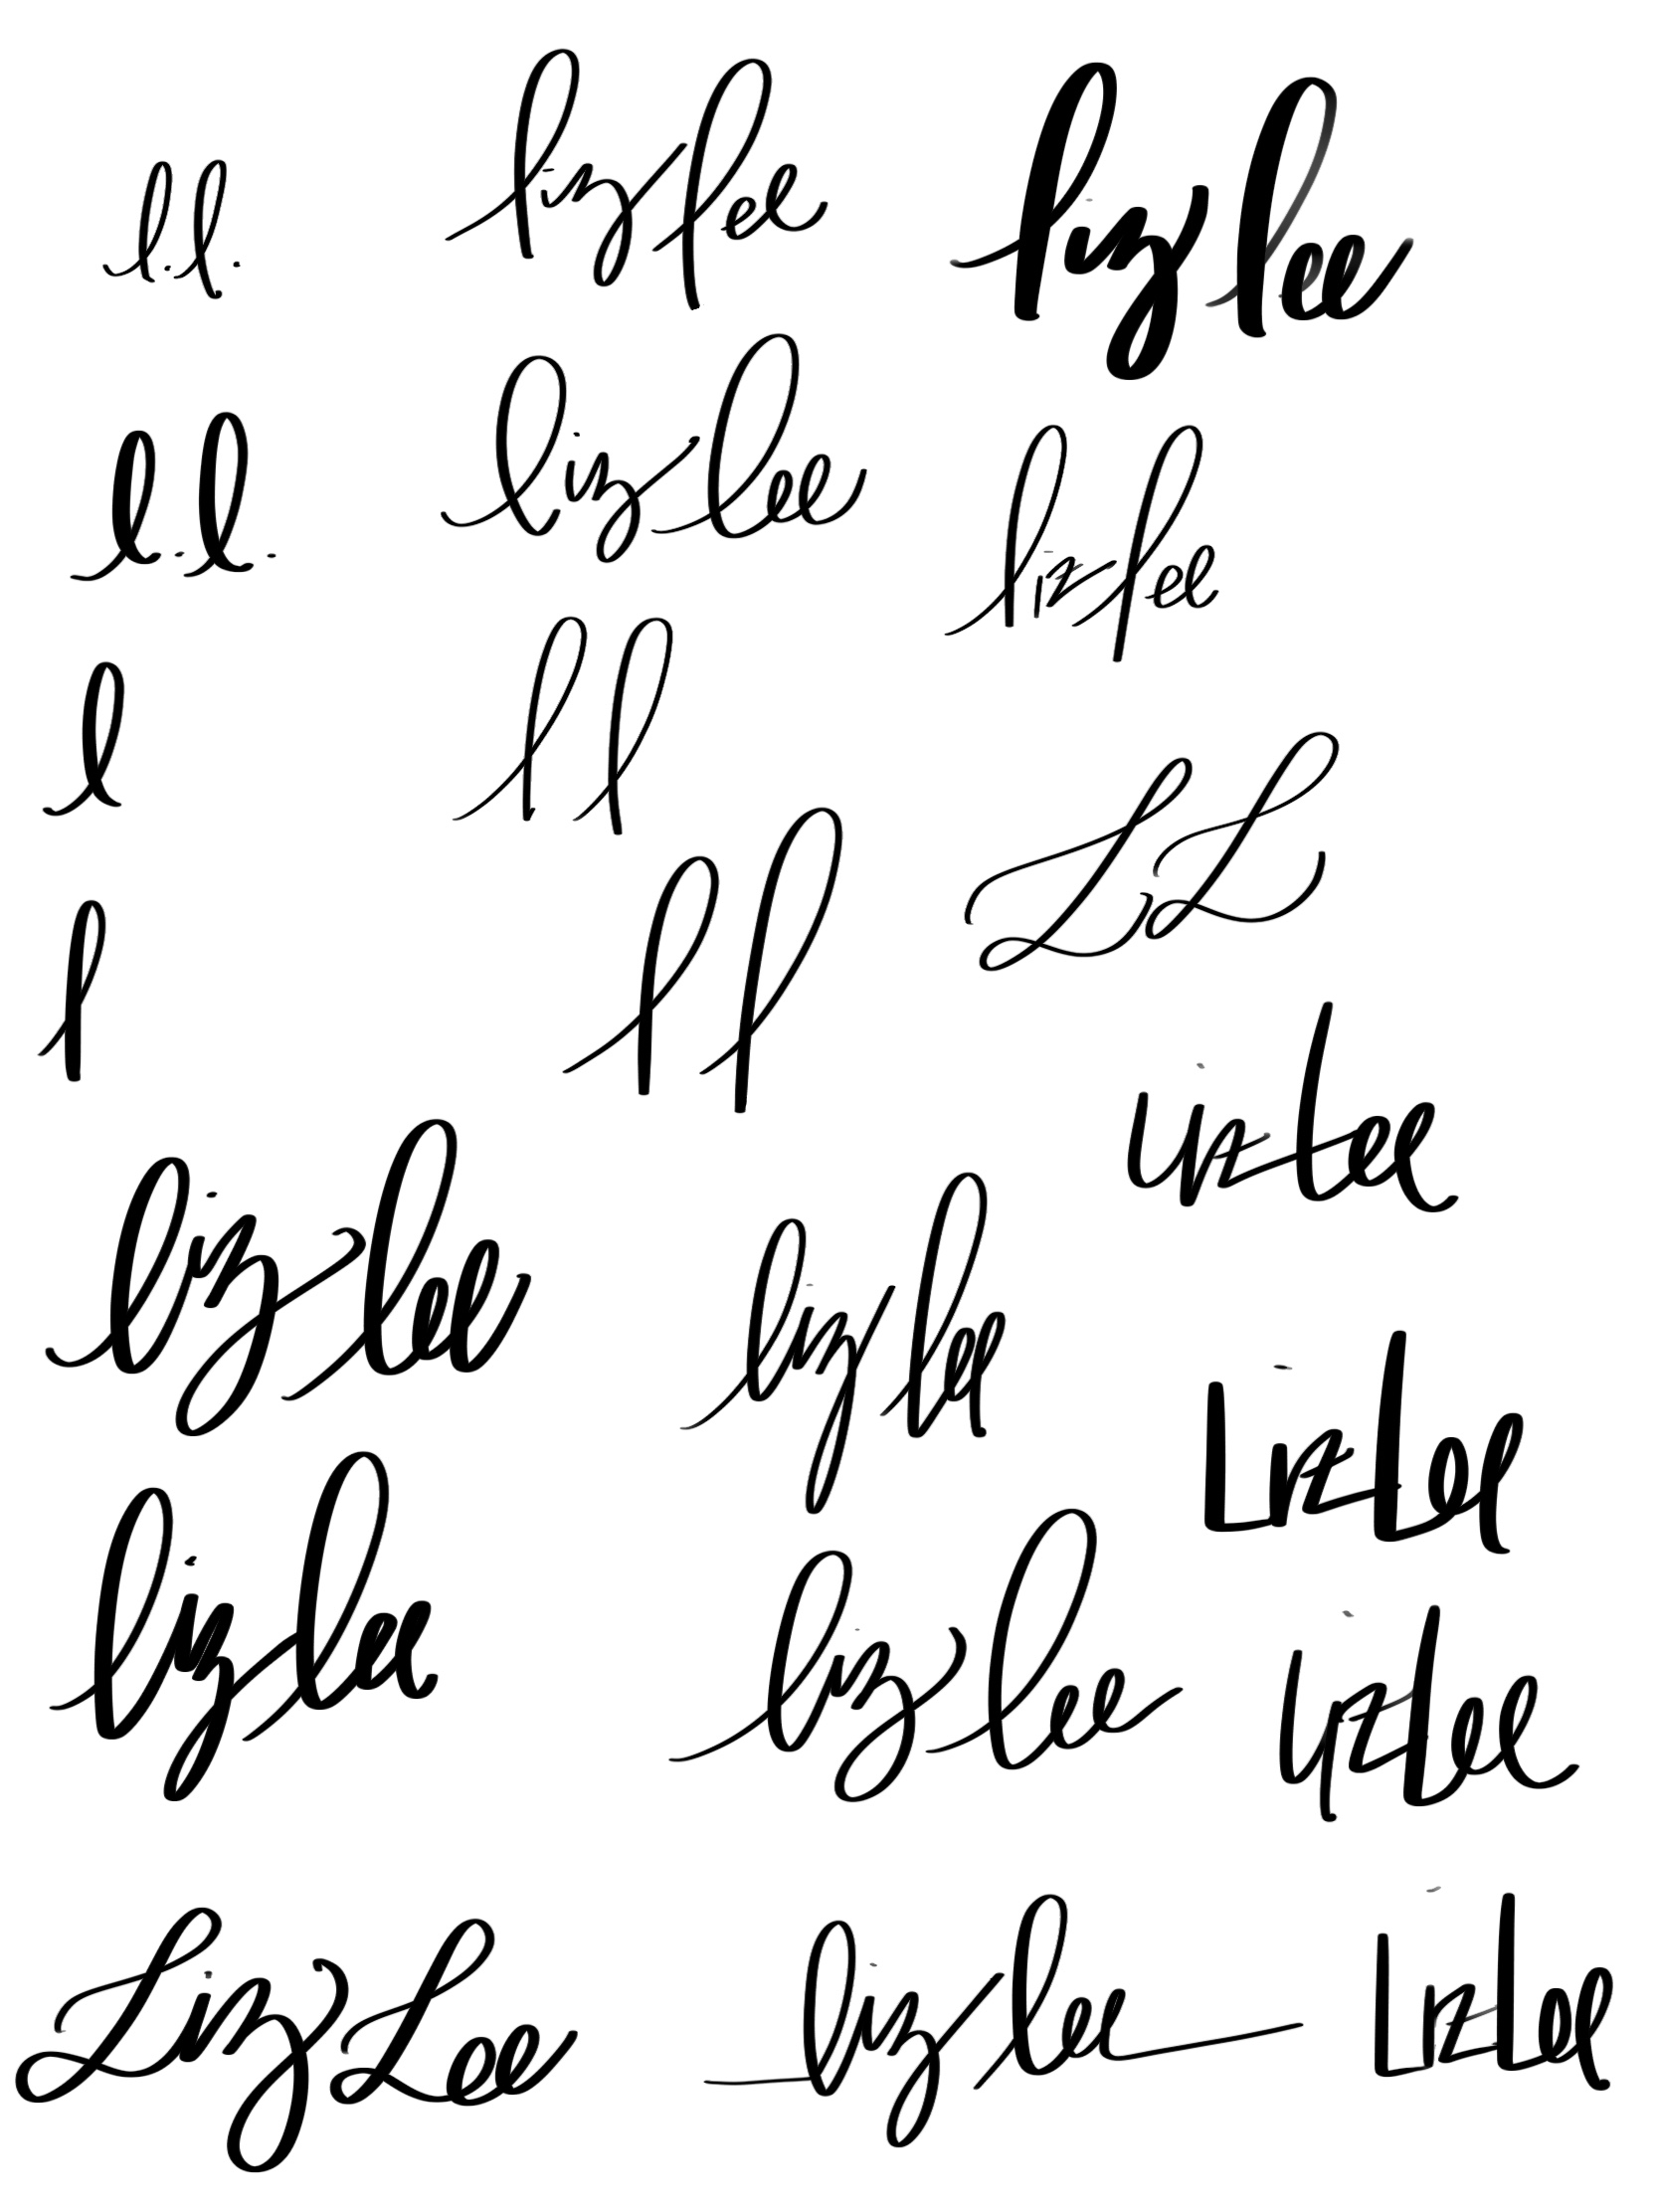 l.l. liz lee liz lee
l.l. liz lee liz lee
l ll LL
l ll liz lee
liz lee liz lee Liz Lee
liz lee liz lee liz lee
Liz Lee liz lee Liz Lee